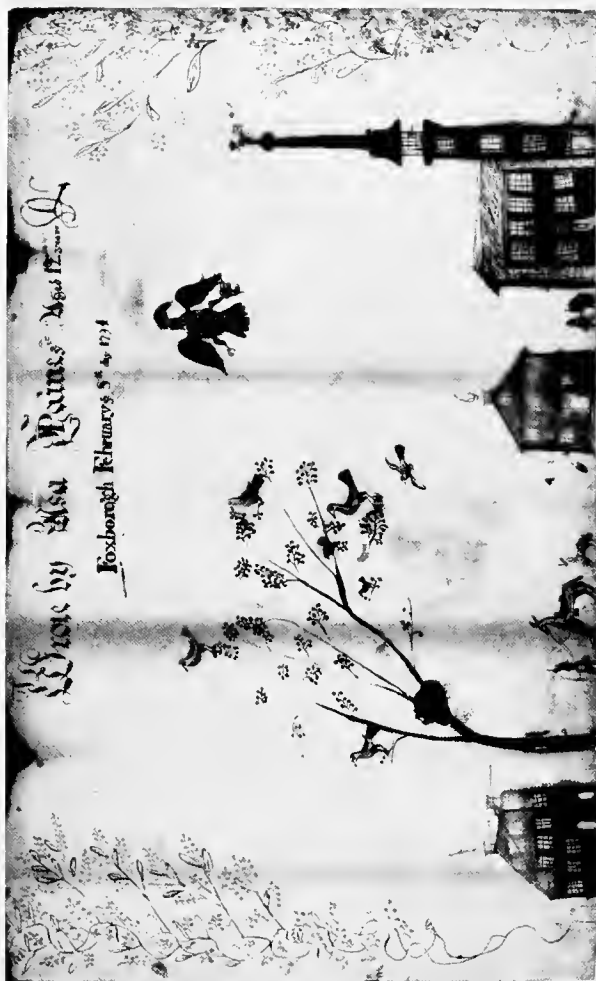 Wrote by Asa Paines Aged 12 years
Foxborough February 5th day